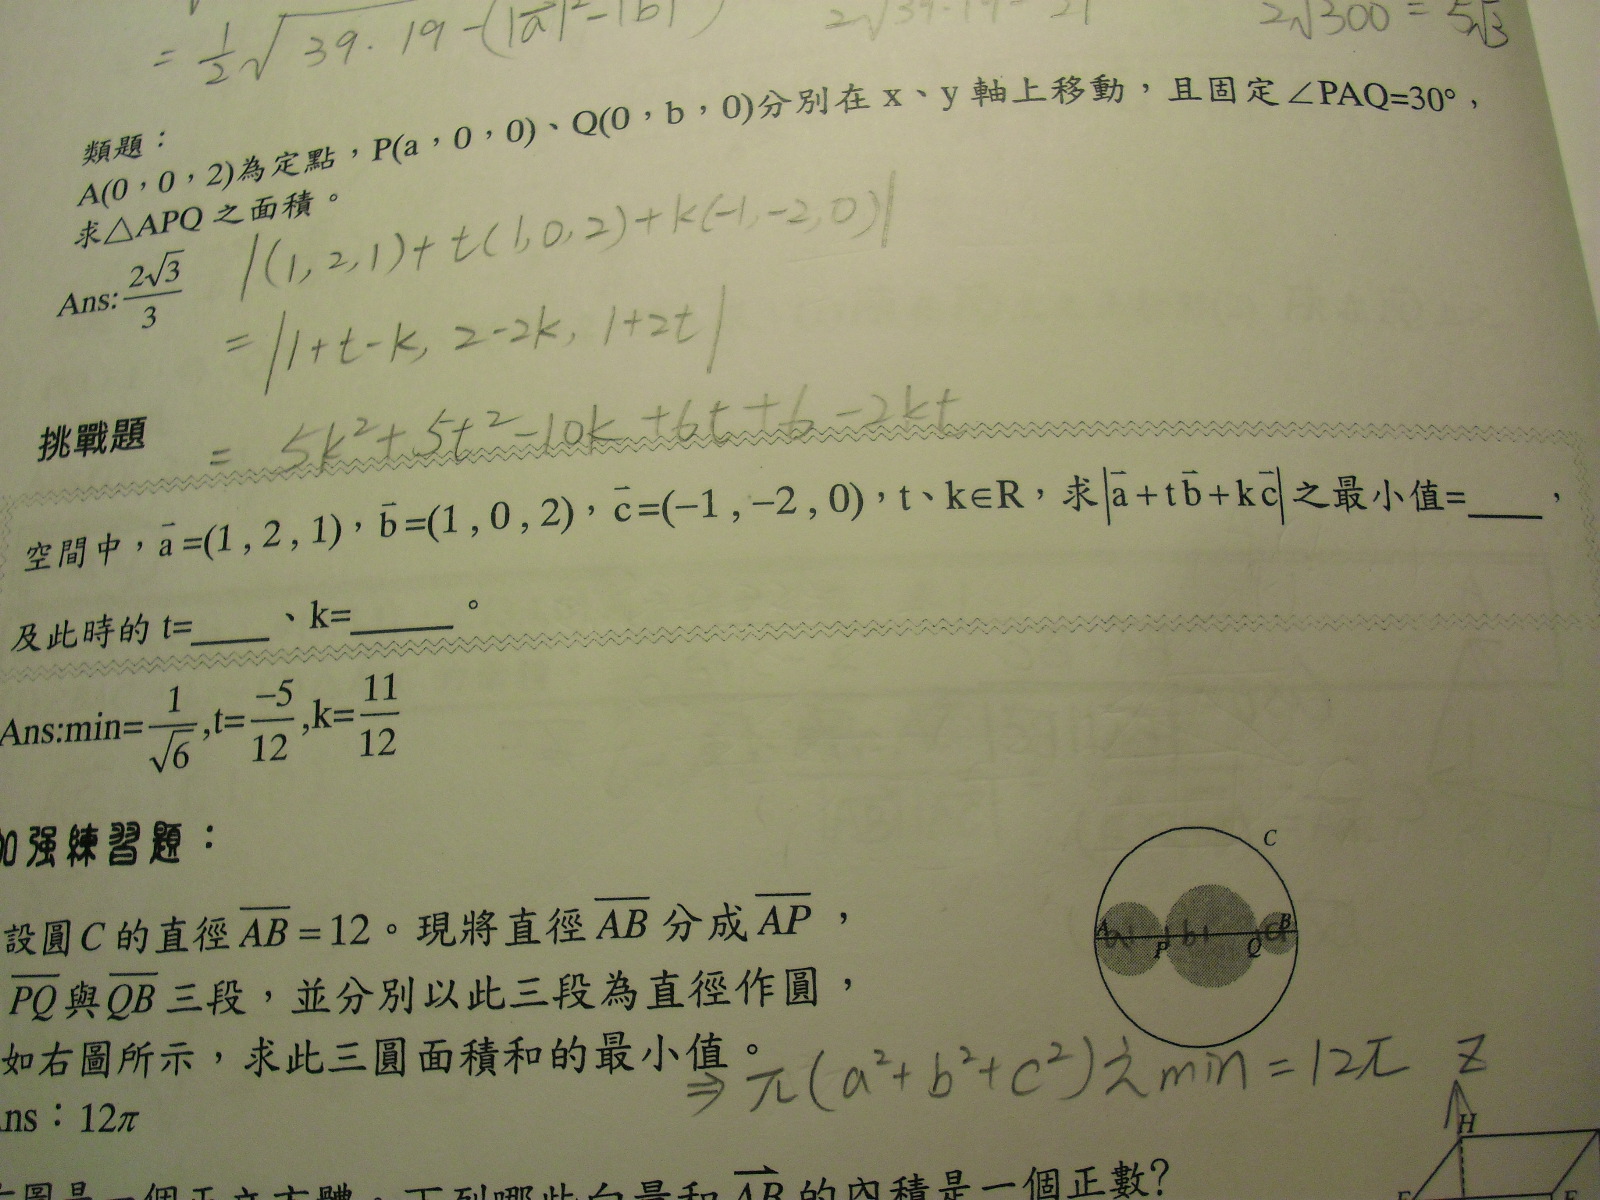 = 1/2 √39·19-(|a|²-|b|
2√39·19-21
2√300 = 5√3
類題：
A(0，0，2)為定點，P(a，0，0)、Q(0，b，0)分別在 x、y 軸上移動，且固定∠PAQ=30°，
求△APQ 之面積。
Ans: 2√3/3
|(1,2,1)+t(1,0,2)+k(-1,-2,0)|
= |1+t-k, 2-2k, 1+2t|
= 5k²+5t²-10k+6t+6-2kt
挑戰題
空間中，a=(1 , 2 , 1)，b=(1 , 0 , 2)，c=(−1 , −2 , 0)，t、k∈R，求|a+tb+kc|之最小值=____，
及此時的 t=____、k=_____。
Ans:min=1/√6,t=−5/12,k=11/12
加強練習題：
C
A P Q B
a b c
設圓C的直徑AB=12。現將直徑AB分成AP，
PQ與QB三段，並分別以此三段為直徑作圓，
如右圖所示，求此三圓面積和的最小值。
⇒ π(a²+b²+c²)之min=12π
Z
ns：12π
H
圖是一個正立方體，下列哪些向量和AB的內積是一個正數?